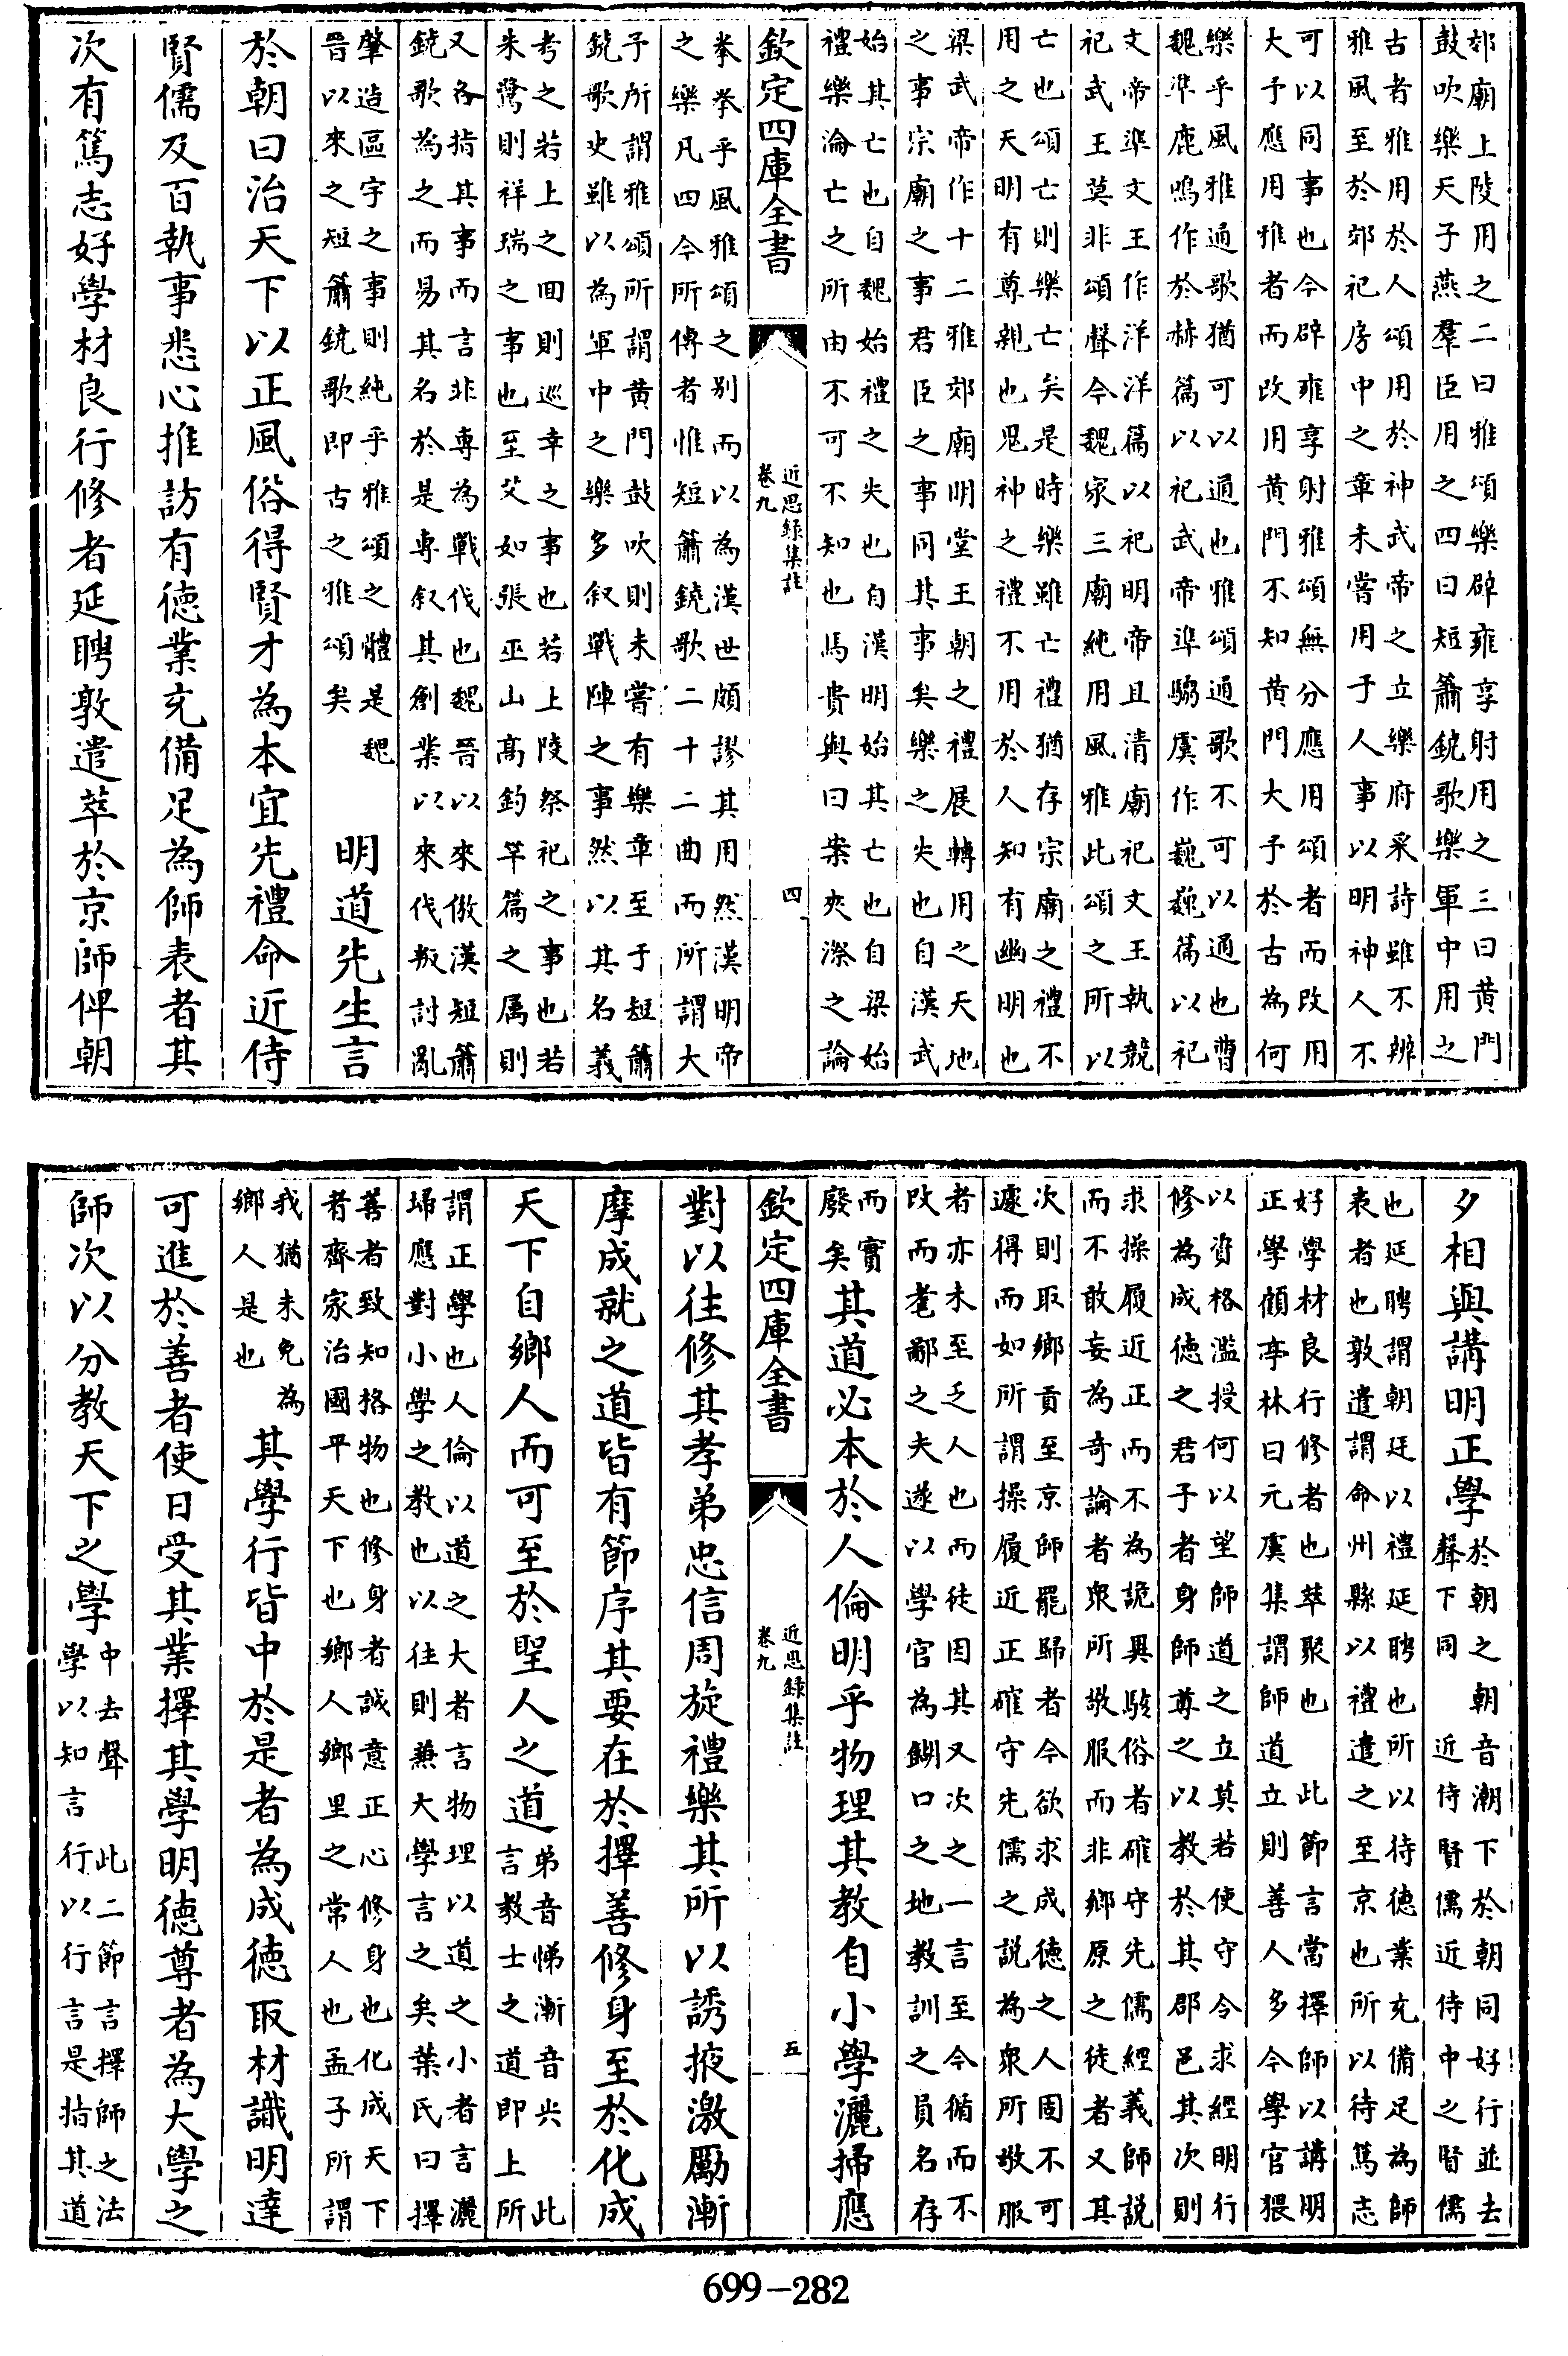 郊廟上陵用之二曰雅頌樂辟雍享射用之三曰黄門
鼓吹樂天子燕羣臣用之四曰短簫鐃歌樂軍中用之
古者雅用於人頌用於神武帝之立樂府采詩雖不辨
雅風至於郊祀房中之章未嘗用于人事以明神人不
可以同事也今辟雍享射雅頌無分應用頌者而改用
大予應用雅者而改用黄門不知黄門大予於古為何
樂乎風雅通歌猶可以通也雅頌通歌不可以通也曹
魏準鹿鳴作於赫篇以祀武帝準騶虞作巍巍篇以祀
文帝準文王作洋洋篇以祀明帝且清廟祀文王執競
祀武王莫非頌聲今魏家三廟純用風雅此頌之所以
亡也頌亡則樂亡矣是時樂雖亡禮猶存宗廟之禮不
用之天明有尊親也鬼神之禮不用於人知有幽明也
梁武帝作十二雅郊廟明堂王朝之禮展轉用之天地
之事宗廟之事君臣之事同其事矣樂之失也自漢武
始其亡也自魏始禮之失也自漢明始其亡也自梁始
禮樂淪亡之所由不可不知也馬貴與曰案夾漈之論
欽定四庫全書
近思録集註
卷九
四
拳拳乎風雅頌之別而以為漢世頗謬其用然漢明帝
之樂凡四今所傳者惟短簫鐃歌二十二曲而所謂大
予所謂雅頌所謂黄門鼓吹則未嘗有樂章至于短簫
鐃歌史雖以為軍中之樂多叙戰陣之事然以其名義
考之若上之回則巡幸之事也若上陵祭祀之事也若
朱鷺則祥瑞之事也至艾如張巫山高釣竿篇之属則
又各指其事而言非專為戰伐也魏晉以來倣漢短簫
鐃歌為之而易其名於是專叙其創業以來伐叛討亂
肇造區宇之事則純乎雅頌之體是魏
晉以來之短簫鐃歌即古之雅頌矣
明道先生言
於朝曰治天下以正風俗得賢才為本宜先禮命近侍
賢儒及百執事悉心推訪有德業充備足為師表者其
次有篤志好學材良行修者延聘敦遣萃於京師俾朝
夕相與講明正學
於朝之朝音潮下於朝同好行並去
聲下同近侍賢儒近侍中之賢儒
也延聘謂朝廷以禮延聘也所以待德業充備足為師
表者也敦遣謂命州縣以禮遣之至京也所以待篤志
好學材良行修者也萃聚也此節言當擇師以講明
正學顧亭林曰元虞集謂師道立則善人多今學官猥
以資格濫授何以望師道之立莫若使守令求經明行
修為成德之君子者身師尊之以教於其郡邑其次則
求操履近正而不為詭異駭俗者確守先儒經義師説
而不敢妄為奇論者衆所敬服而非鄉原之徒者又其
次則取鄉貢至京師罷歸者今欲求成德之人固不可
遽得而如所謂操履近正確守先儒之説為衆所敬服
者亦未至乏人也而徒因其又次之一言至今循而不
改而耄鄙之夫遂以學官為餬口之地教訓之員名存
而實
廢矣
其道必本於人倫明乎物理其教自小學灑掃應
欽定四庫全書
近思録集註
卷九
五
對以往修其孝弟忠信周旋禮樂其所以誘掖激厲漸
摩成就之道皆有節序其要在於擇善修身至於化成
天下自鄉人而可至於聖人之道
弟音悌漸音尖此
言教士之道即上所
謂正學也人倫以道之大者言物理以道之小者言灑
掃應對小學之教也以往則兼大學言之矣葉氏曰擇
善者致知格物也修身者誠意正心修身也化成天下
者齊家治國平天下也鄉人鄉里之常人也孟子所謂
我猶未免為
鄉人是也
其學行皆中於是者為成德取材識明達
可進於善者使日受其業擇其學明德尊者為大學之
師次以分教天下之學
中去聲此二節言擇師之法
學以知言行以行言是指其道
699－282